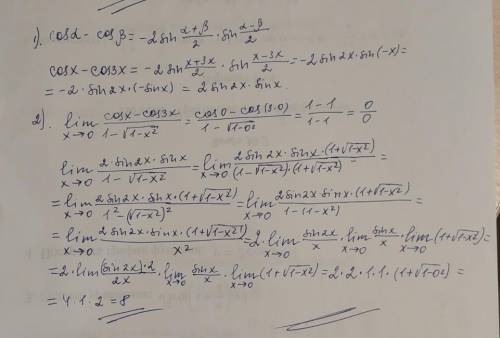 1). cosα - cosβ = -2 sin (α+β)/2 · sin (α-β)/2
cosx - cos3x = -2 sin (x+3x)/2 · sin (x-3x)/2 = -2 sin2x · sin(-x) =
= -2 · sin2x · (-sinx) = 2 sin2x · sinx.
2). lim x→0 (cosx - cos3x)/(1-√(1-x²)) = (cos0 - cos(3·0))/(1-√(1-0²)) = (1-1)/(1-1) = 0/0
lim x→0 (2·sin2x·sinx)/(1-√(1-x²)) = lim x→0 (2sin2x·sinx·(1+√(1-x²)))/((1-√(1-x²))·(1+√(1-x²))) =
= lim x→0 (2sin2x·sinx·(1+√(1-x²)))/(1²-(√(1-x²))²) = lim x→0 (2sin2x·sinx·(1+√(1-x²)))/(1-(1-x²)) =
= lim x→0 (2sin2x·sinx·(1+√(1-x²)))/x² = 2·lim x→0 sin2x/x · lim x→0 sinx/x · lim x→0 (1+√(1-x²)) =
= 2·lim x→0 (sin2x)·2/2x · lim x→0 sinx/x · lim x→0 (1+√(1-x²)) = 2·2·1·1·(1+√(1-0²)) =
= 4·1·2 = 8